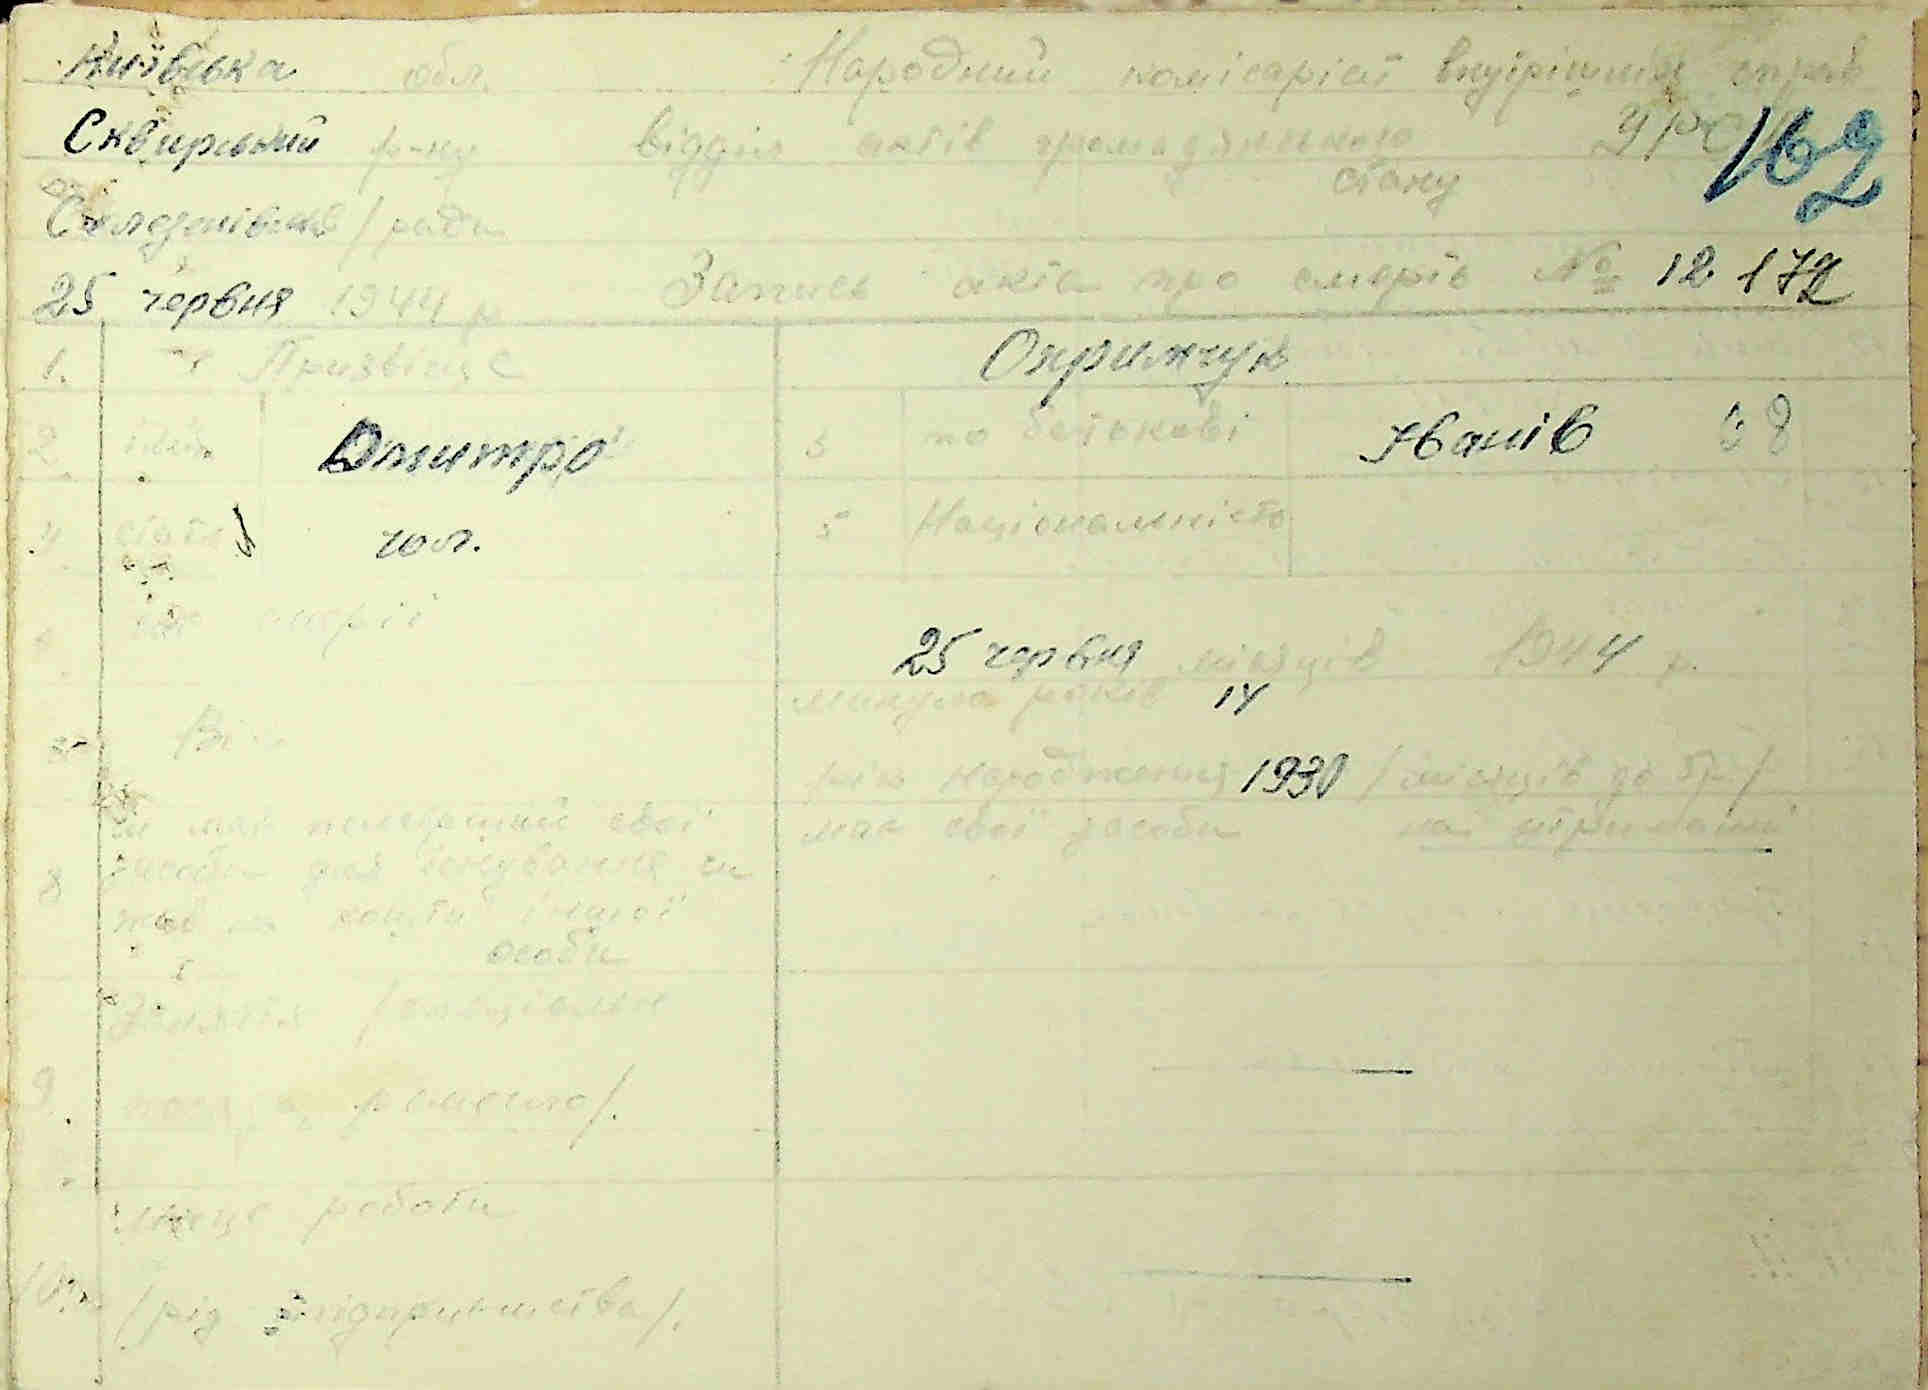 Київська обл. Народний комісаріат внутрішніх справ
Сквирський р-ну Відділ актів громадянського УРСР 162
стану
Селезенівська / рада
25 червня 1944 р. Запись акта про смерть № 12 172
1. Призвіще Опримчук
2. ім'я Дмитро 3 по батькові Іванів
4. стать чол. 5 Національність
смерті
25 червня місяців 1944 р.
минуло років 14
Вік
рік народження 1930 / місяців до 5р /
чи мав свої має свої засоби на утриманні
8 засоби для існування чи
жив на кошти іншої
особи
Заняття /спеціальн
9 посада, ремесло/.
місце роботи
10. /рід підприємства/.